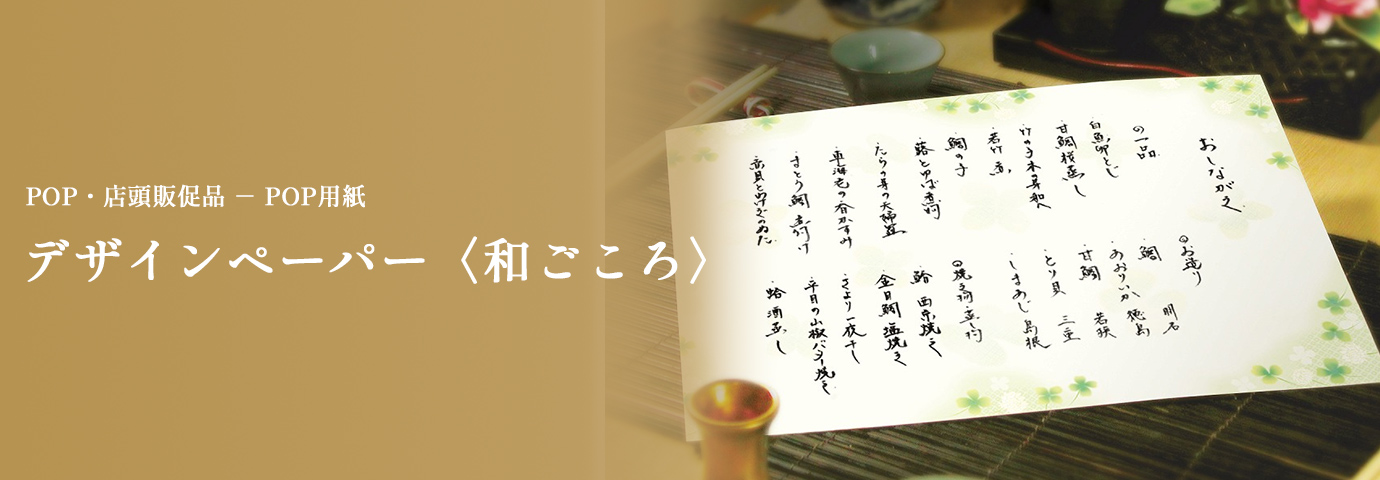 POP・店頭販促品 － POP用紙
デザインペーパー〈和ごころ〉
おしながき
の一品
白魚卵とじ
甘鯛桜蒸し
竹の子木の芽和へ
若竹煮
鯛の子
蕗とゆば煮物
たらの芽の天婦羅
車海老の香かすみ
まとう鯛煮付け
お造り
鯛 明石
あおりいか 徳島
甘鯛 若狭
とり貝 三重
しまあじ 島根
の焼き物・蒸し物
鮨 西京焼き
金目鯛 塩焼き
さより一夜干し
平目の山椒バター焼き
蛤 酒蒸し